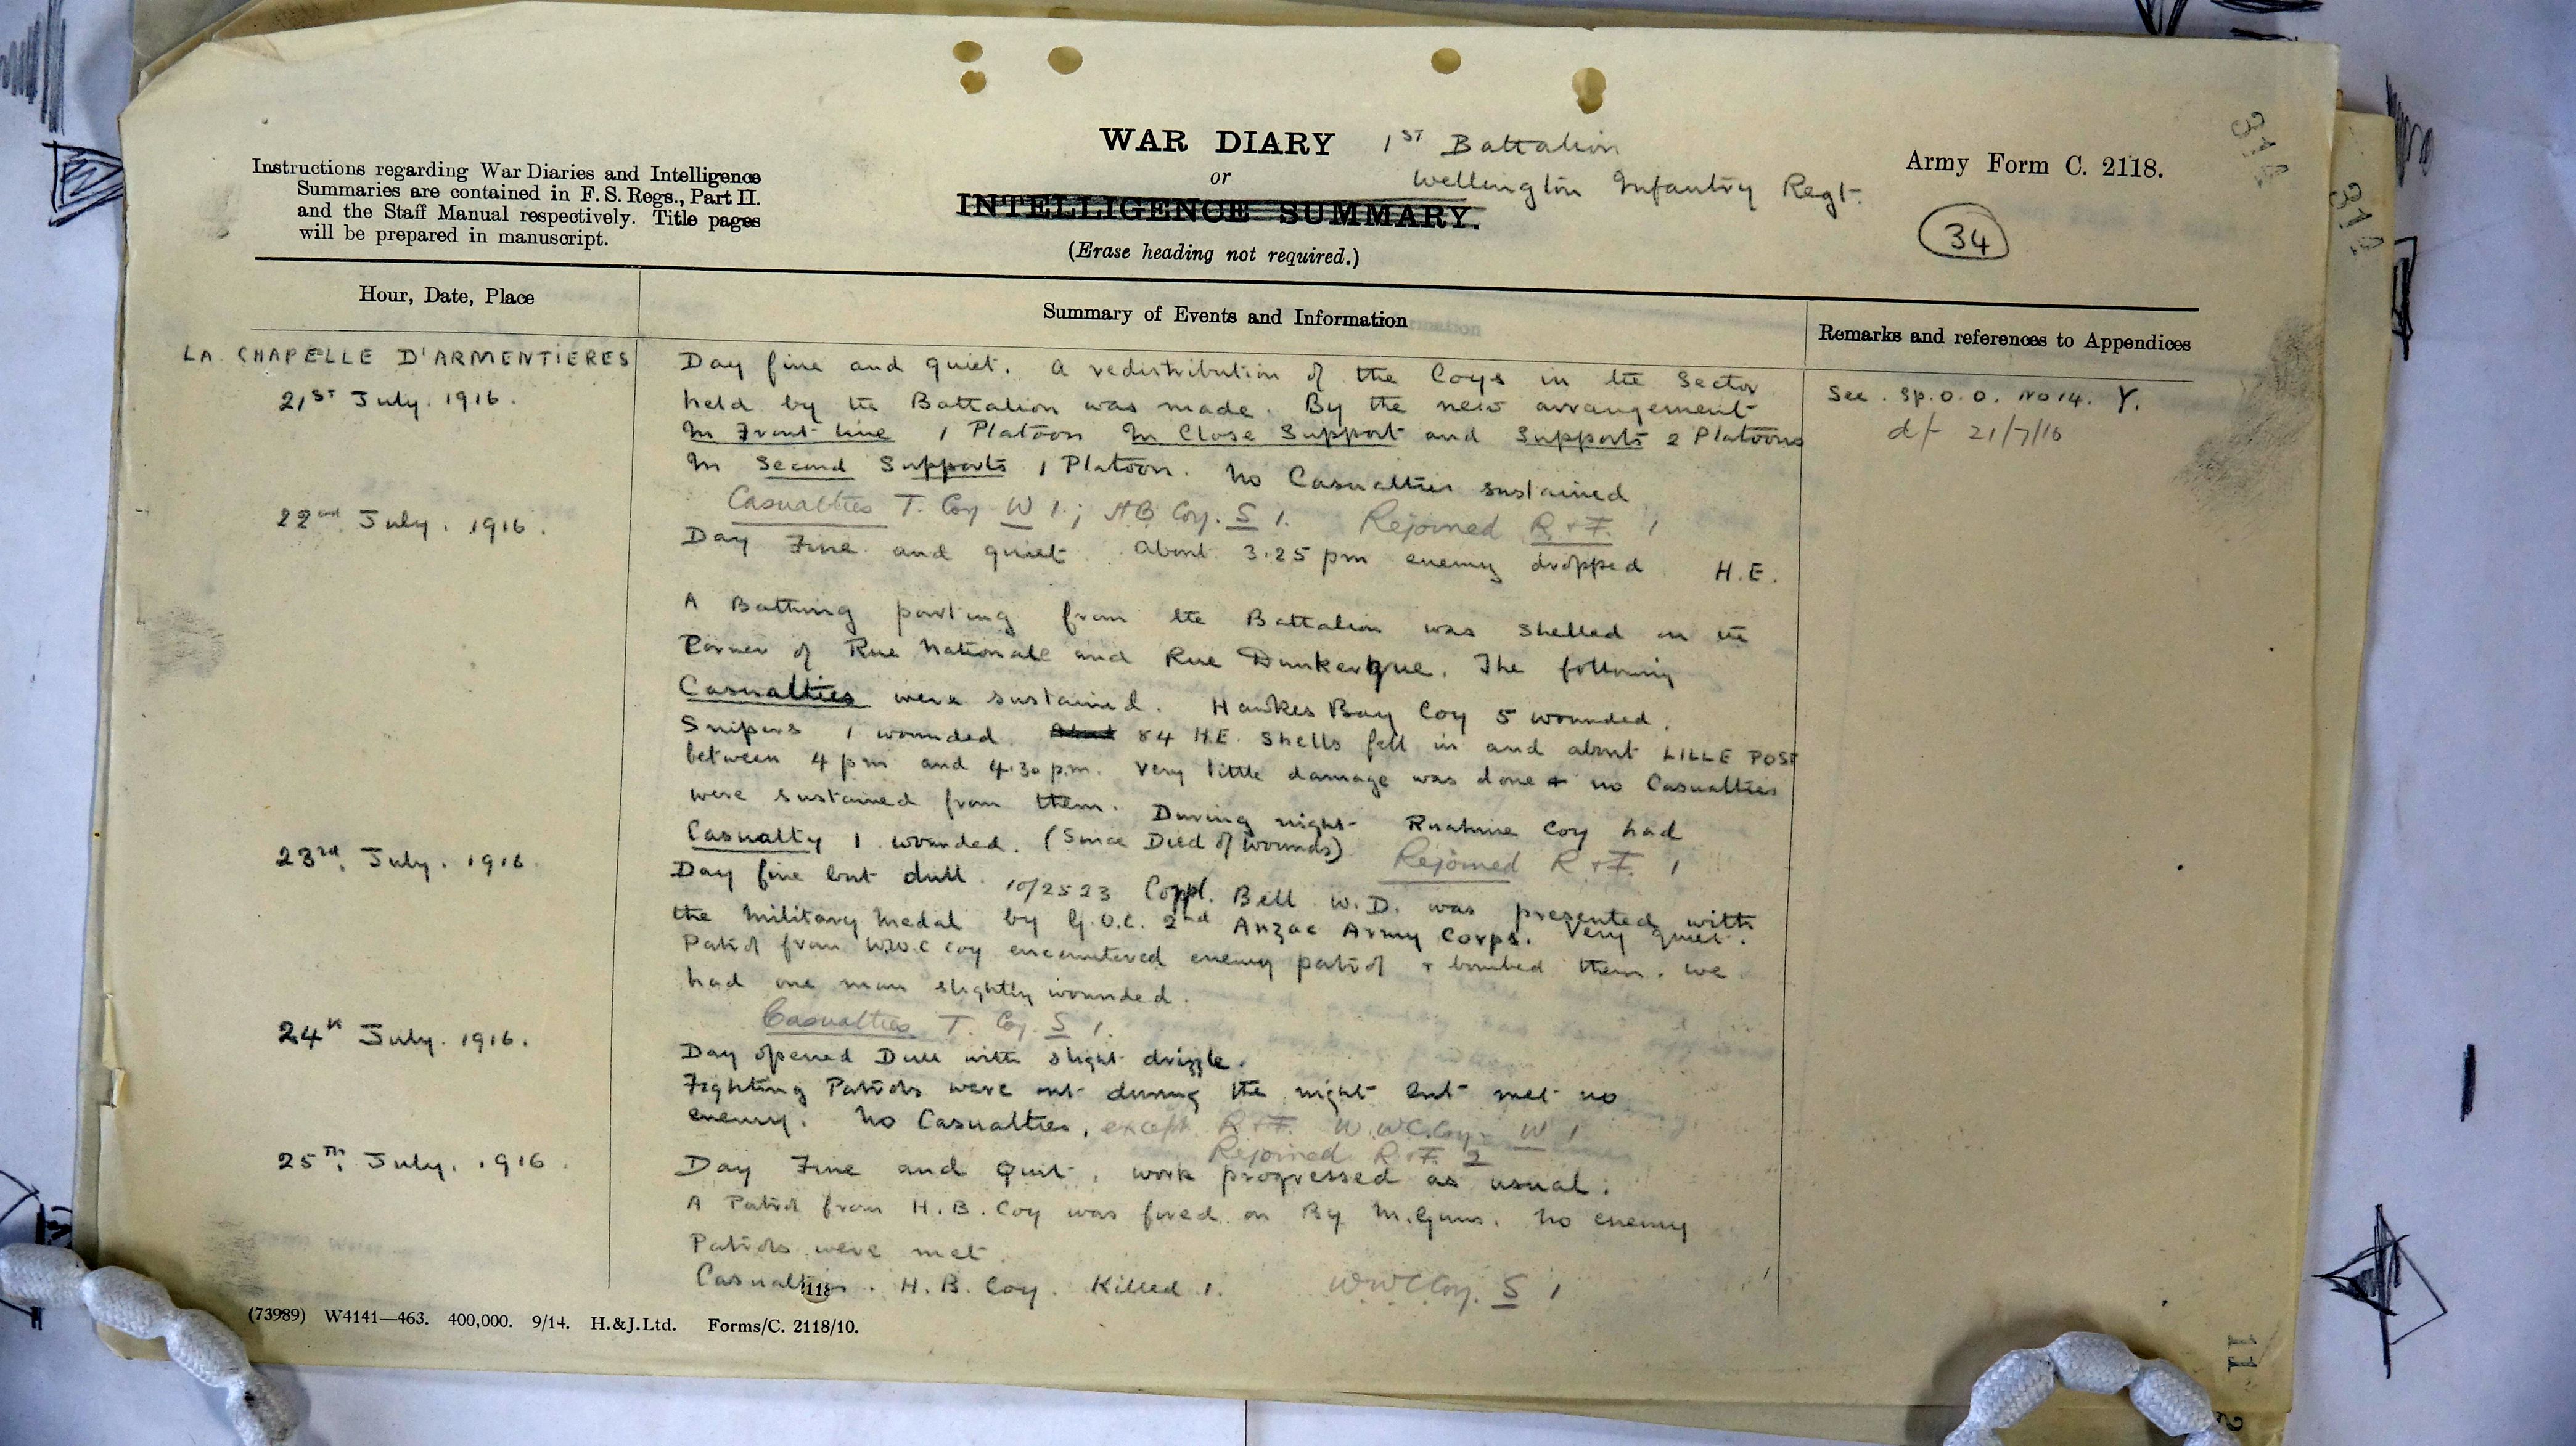 WAR DIARY 1ST Battalion
or Wellington Infantry Regt.
INTELLIGENCE SUMMARY.
(Erase heading not required.)
Instructions regarding War Diaries and Intelligence
Summaries are contained in F. S. Regs., Part II.
and the Staff Manual respectively. Title pages
will be prepared in manuscript.
Army Form C. 2118.
34
Hour, Date, Place
Summary of Events and Information
Remarks and references to Appendices
LA CHAPELLE D'ARMENTIERES
21ST July. 1916.
Day fine and quiet. A redistribution of the Coys in the Sector
held by the Battalion was made. By the new arrangement
In Front line 1 Platoon In Close Support and Supports 2 Platoons
In Second Supports 1 Platoon. No Casualties sustained
Casualties T. Coy W 1; HB Coy. S 1. Rejoined R & F. 1
See. Sp. O. O. No 14. Y.
d/- 21/7/16
22nd July. 1916.
Day Fine and quiet. About 3.25 pm enemy dropped H.E.
A Bathing party from the Battalion was shelled on the
Corner of Rue Nationale and Rue Dunkerque. The following
Casualties were sustained. Hawkes Bay Coy 5 wounded.
Snipers 1 wounded. About 84 H.E. Shells fell in and about LILLE POST
between 4 pm and 4.30 p.m. Very little damage was done & no Casualties
were sustained from them. During night Ruahine Coy had
Casualty 1 wounded. (Since Died of Wounds) Rejoined R & F. 1
23rd. July. 1916.
Day fine but dull. 10/2523 Coppl. Bell W.D. was presented with
the Military Medal by G.O.C. 2nd Anzac Army Corps. Very quiet.
Patrol from W.W.C Coy encountered enemy patrol & bombed them. We
had one man slightly wounded.
Casualties T. Coy. S 1.
24th July. 1916.
Day opened Dull with slight drizzle.
Fighting Patrols were out during the night but met no
enemy. No Casualties, except R & F. W.W.C. Coy. W 1
Rejoined R & F. 2
25TH. July. 1916.
Day Fine and Quiet. work progressed as usual.
A Patrol from H.B. Coy was fired on By M.Guns. No enemy
Patrols were met
Casualties. H.B. Coy. Killed 1. W.W.C Coy. S 1
(73989) W4141—463. 400,000. 9/14. H.&J.Ltd. Forms/C. 2118/10.